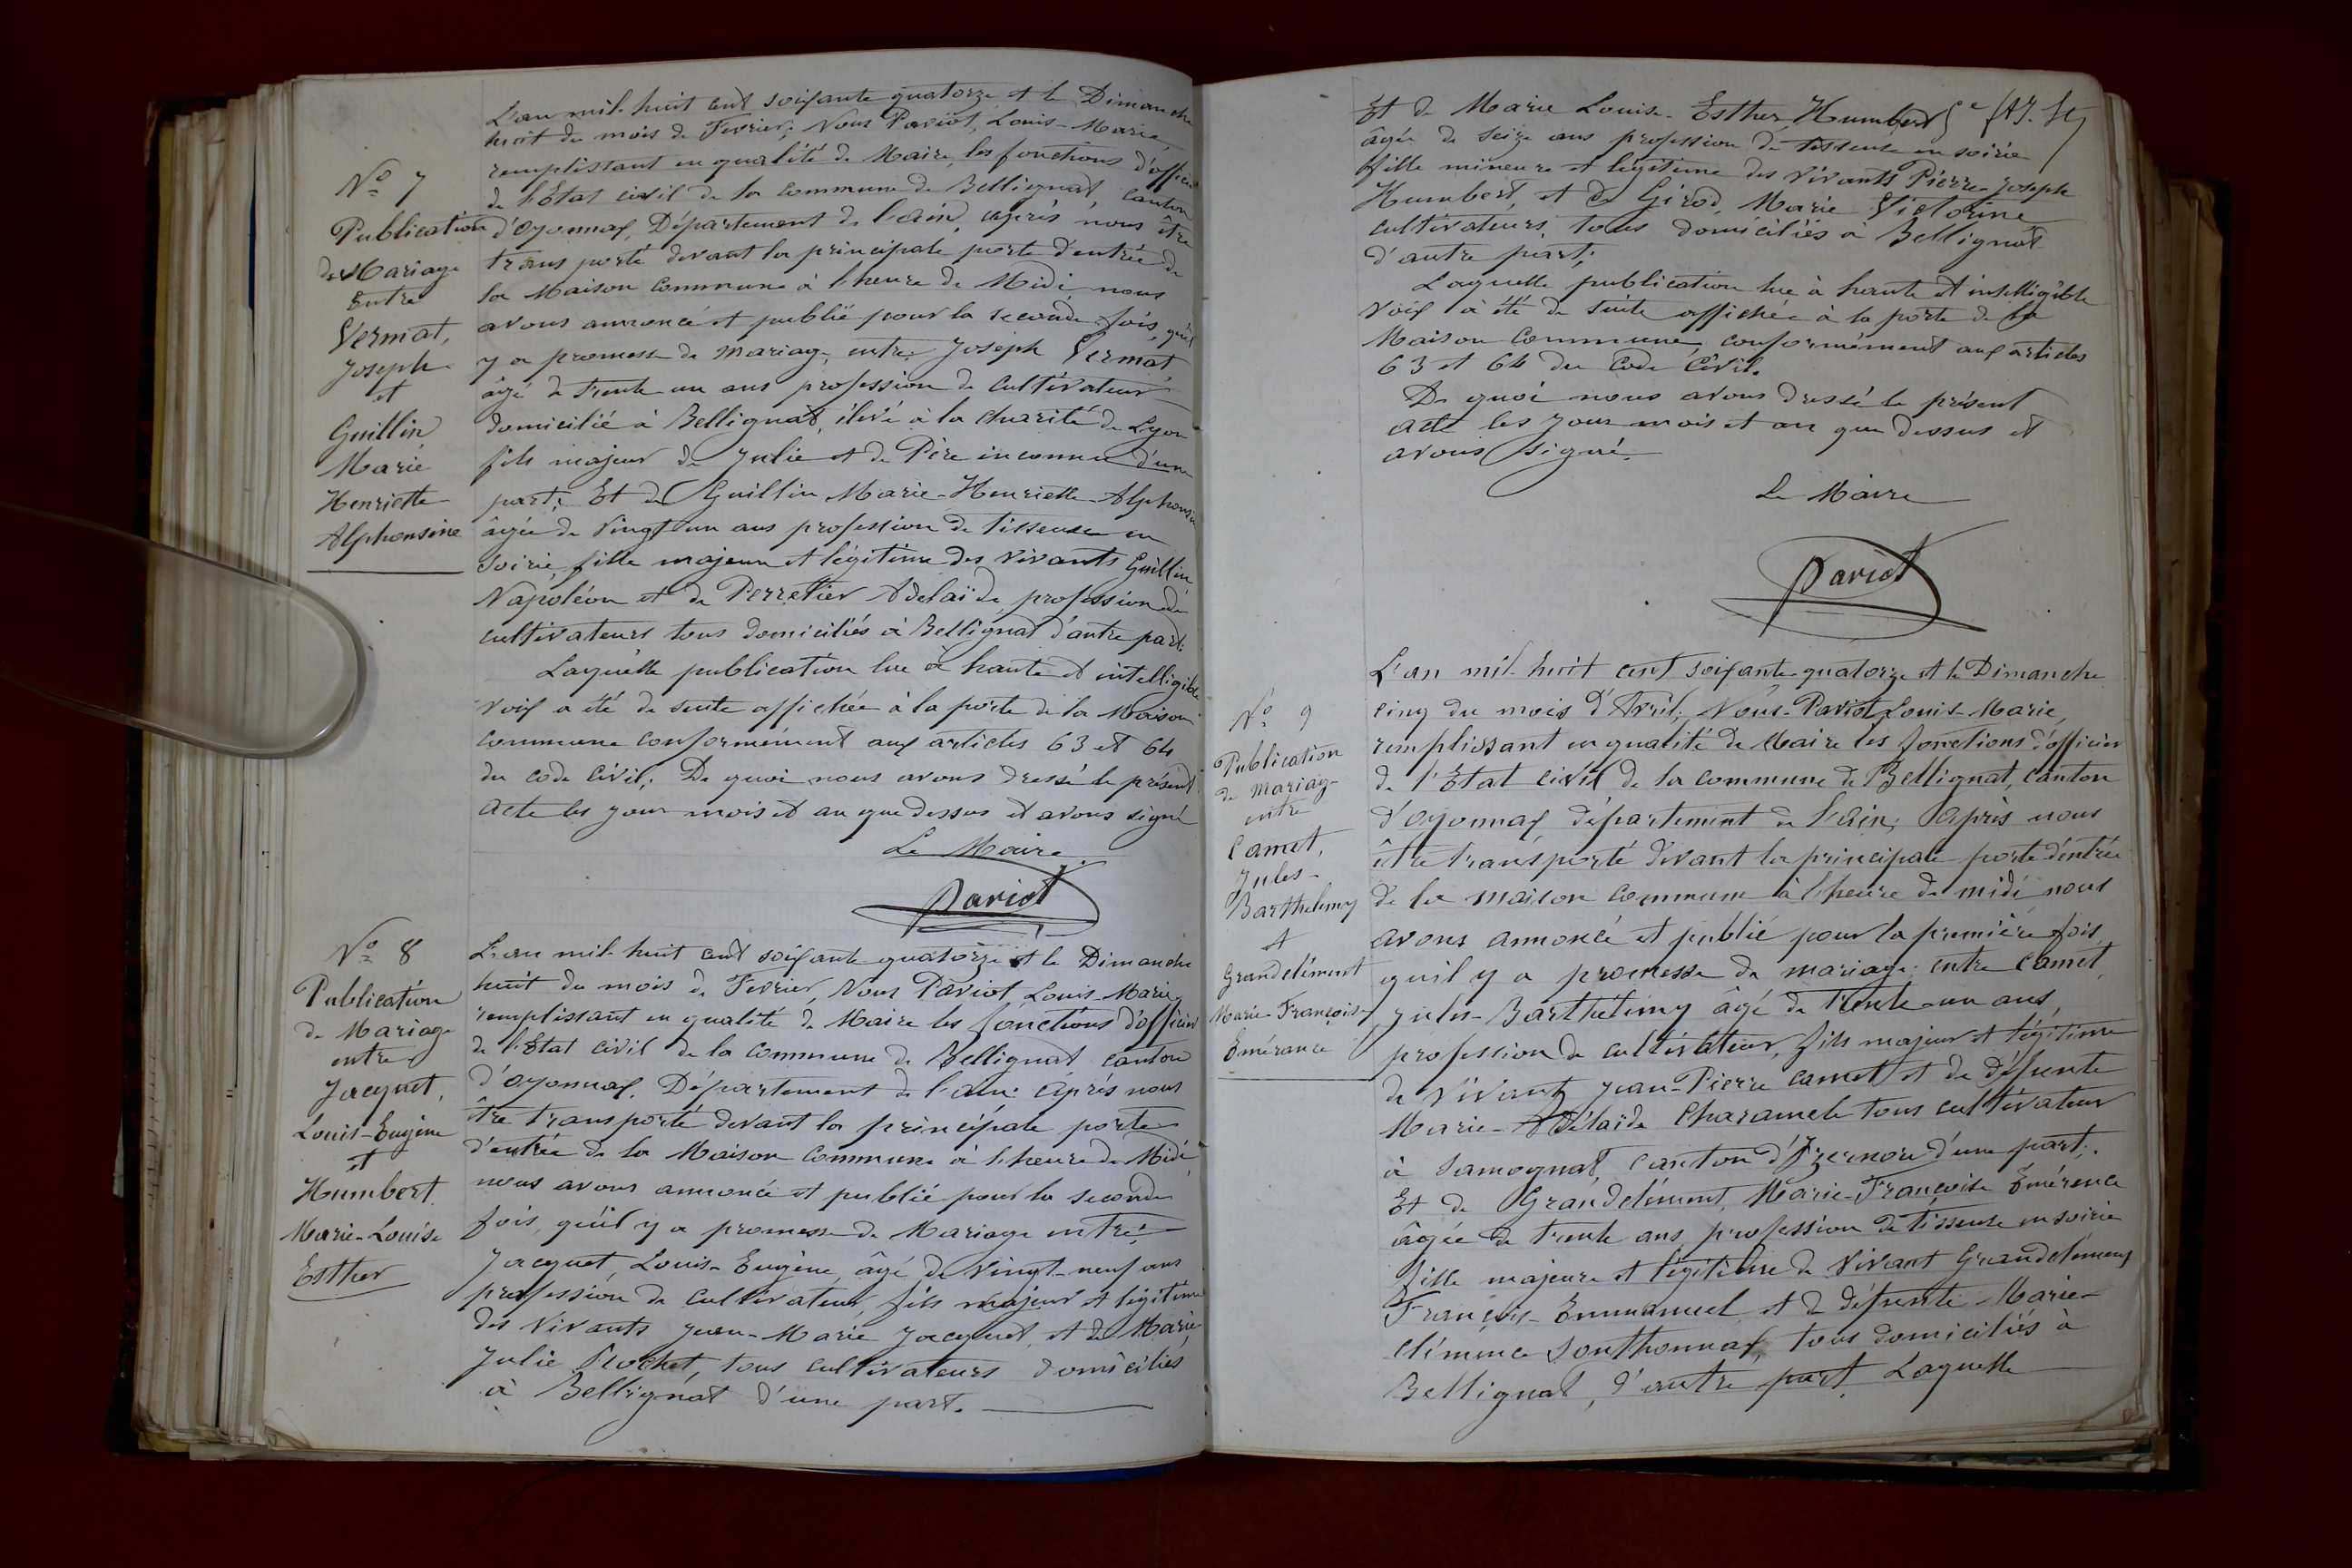 L'an mil huit cent soixante quatorze et le Dimanche
huit du mois de Fevrier; Nous Pariot, Louis-Marie
remplissant en qualité de Maire, les fonctions d'officier
de l'Etat civil de la commune de Bellignat canton
d'oyonnax, Département de l'ain, après nous être
transporté devant la principale porte d'entrée de
la Maison Commune à l'heure de Midi nous
avons annoncé et publié pour la seconde fois, qu'il
y a promesse de mariage, entre Joseph Vermat
âgé de Trente un ans profession de Cultivateur
domicilié à Bellignat, élevé à la charité de Lyon
fils majeur de Julie et de Père inconnu d'une
part; Et de Guillin Marie-Henriette Alphonsine
âgée de Vingt un ans profession de tisseuse en
soirie, fille majeure et légitime des vivants Guillin
Napoléon et de Perretier Adelaïde profession de
cultivateurs tous domiciliés à Bellignat d'autre part.
Laquelle publication lue à haute et intelligible
voix a été de suite affichée à la porte de la Maison
commune conformément aux articles 63 et 64
du code Civil; De quoi nous avons dressé le présent
acte les jour mois et an que dessus et avons signé
Le Maire
Pariot
No 7
Publication
de Mariage
Entre
Vermat,
Joseph
et
Guillin
Marie
Henriette
Alphonsine
No 8
Publication
de Mariage
entre
Jacquet,
Louis-Eugène
et
Humbert
Marie-Louise
Esther
L'an mil huit cent soixante quatorze et le Dimanche
huit du mois de Fevrier, Nous Pariot, Louis-Marie
remplissant en qualité de Maire les fonctions d'officier
de l'Etat civil de la commune de Bellignat canton
d'oyonnax, Département de l'ain: après nous
être transporté devant la principale porte
d'entrée de la Maison Commune à l'heure de Midi
nous avons annoncé et publié pour la seconde
fois, qu'il y a promesse de Mariage entre
Jacquet, Louis-Eugène, âgé de Vingt-neuf ans
profession de Cultivateur, fils majeur et légitime
des Vivants Jean-Marie Jacquet, et de Marie
Julie Rochet, tous cultivateurs domiciliés
à Bellignat d'une part.
Et de Marie Louise-Esther Humbert
âgée de seize ans profession de tisseuse en soirie
fille mineure et légitime des Vivants Pierre-Joseph
Humbert, et de Girod, Marie Victorine
cultivateurs, tous domiciliés à Bellignat
d'autre part;
Laquelle publication lue à haute et intelligible
voix a été de suite affichée à la porte de la
Maison Commune, conformément aux articles
63 et 64 du Code Civil.
De quoi nous avons dressé le présent
acte les jour mois et an que dessus et
avons signé.
Le Maire
Pariot
No 9
Publication
de Mariage
entre
Camet,
Jules-
Barthelemy
et
Grandclément
Marie-Françoise
Emérance
L'an mil huit cent soixante-quatorze et le Dimanche
cinq du mois d'Avril; Nous-Pariot, Louis-Marie,
remplissant en qualité de Maire les fonctions d'officier
de l'Etat civil de la commune de Bellignat, canton
d'Oyonnax, département de l'ain; après nous
être transporté devant la principale porte d'entrée
de la maison commune à l'heure de midi nous
avons annoncé et publié pour la première fois
qu'il y a promesse de mariage: entre Camet,
Jules-Barthélemy âgé de trente-un ans,
profession de cultivateur, fils majeur et légitime
de Vivant Jean-Pierre Camet et de défunte
Marie-Adélaïde Charamele tous cultivateur
à Samognat, canton d'Izernore d'une part.
Et de Grandclément, Marie-Françoise Emérence
âgée de trente ans profession de tisseuse en soirie
fille majeure et légitime de Vivant Grandclément
François-Emmanuel et de défunte Marie-
Clémence Southonnax, tous domiciliés à
Bellignat, d'autre part. Laquelle